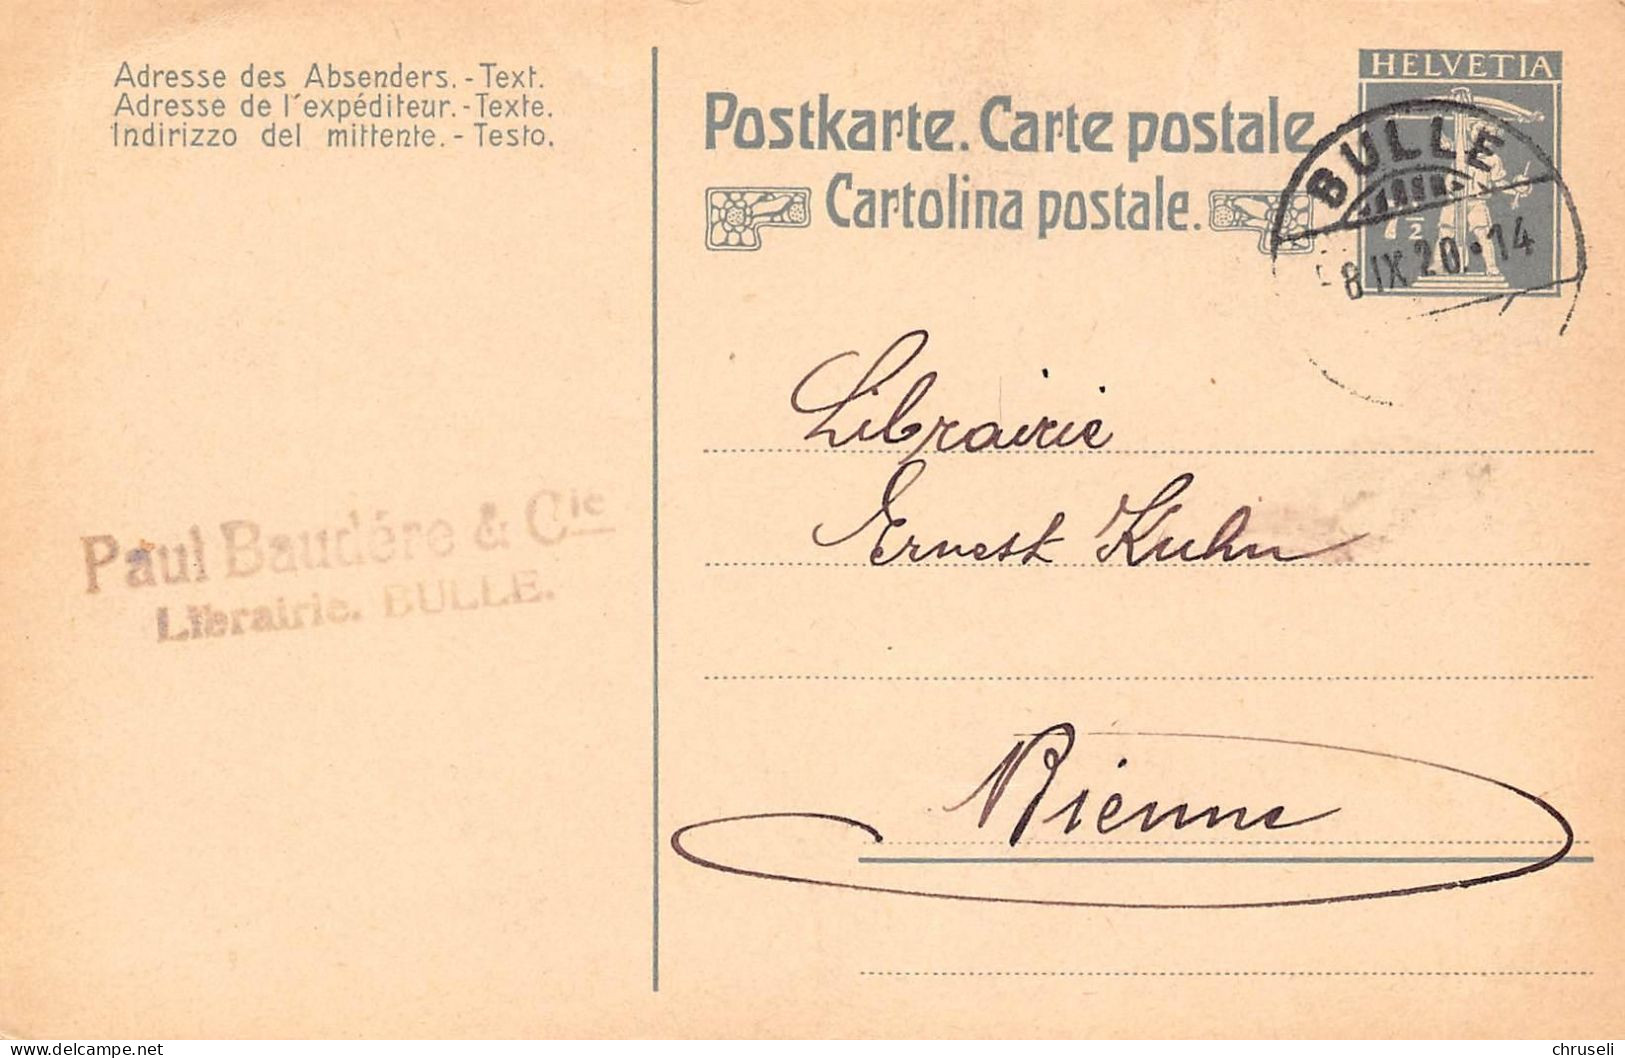 Adresse des Absenders. - Text.
Adresse de l'expéditeur. - Texte.
Indirizzo del mittente. - Testo.
Postkarte. Carte postale
Cartolina postale.
HELVETIA
7 1/2
BULLE
8 IX 20. • 14
Paul Baudère & Cie
Librairie. BULLE.
Librairie
Ernest Kuhn
Bienne
chruseli